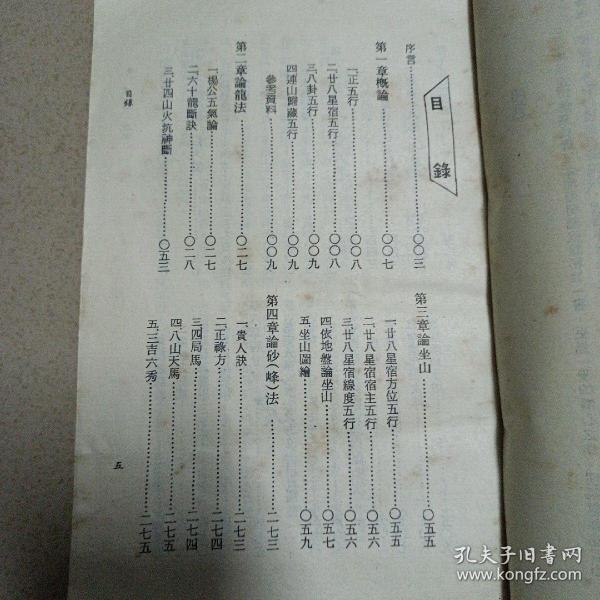 目錄
序言……〇〇三
第一章概論……〇〇七
一、正五行……〇〇八
二、廿八星宿五行……〇〇八
三、八卦五行……〇〇九
四、連山歸藏五行……〇〇九
參考資料……〇〇九
第二章論龍法……〇二七
一、楊公五氣論……〇二七
二、六十龍斷訣……〇二八
三、廿四山火坑神斷……〇五三
第三章論坐山……〇五五
一、廿八星宿方位五行……〇五五
二、廿八星宿宿主五行……〇五六
三、廿八星宿線度五行……〇五六
四、依地盤論坐山……〇五七
五、坐山圖繪……〇五九
第四章論砂(峰)法……二七三
一、貴人訣……二七三
二、正祿方……二七四
三、四局馬……二七四
四、八山天馬……二七五
五、三吉六秀……二七五
目錄
五
孔夫子旧书网
www.kongfz.com